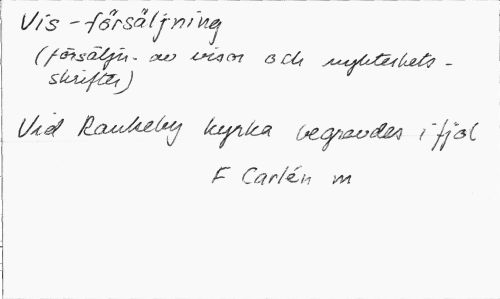 Vis-försäljning
(försäljn. av visor och nykterhets-
skrifter)
Vid Rankeby kyrka begravdes i fjol
F Carlén m